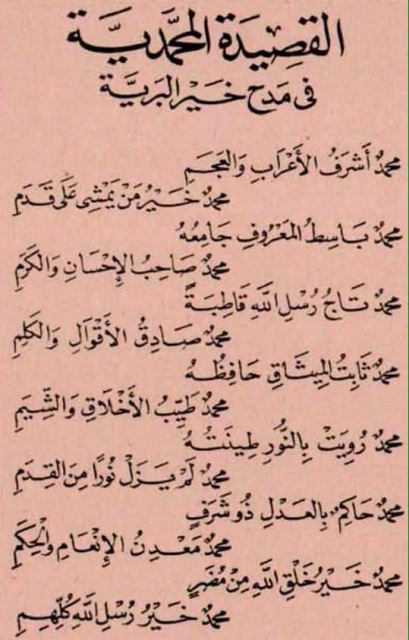 القَصِيدَة المُحَمَّديَّة
فى مَدح خَيْر البَريَّة
محمدٌ أَشرَفُ الأَعْرَابِ وَالعَجَمِ
محمدٌ خَيْرُ مَنْ يَمْشِى عَلَى قَدَمِ
محمدٌ بَاسِطُ المَعْرُوفِ جَامِعُهُ
محمدٌ صَاحِبُ الإِحْسَانِ وَالكَرَمِ
محمدٌ تَاجُ رُسْلِ اللَّهِ قَاطِبَةً
محمدٌ صَادِقُ الأَقْوَالِ وَالكَلِمِ
محمدٌ ثَابِتُ المِيثَاقِ حَافِظُهُ
محمدٌ طَيِّبُ الأَخْلَاقِ وَالشِّيَمِ
محمدٌ رُوِيَتْ بِالنُّورِ طِينَتُهُ
محمدٌ لَمْ يَزَلْ نُورًا مِنَ القِدَمِ
محمدٌ حَاكِمٌ بِالعَدْلِ ذُو شَرَفٍ
محمدٌ مَعْدِنُ الإِنْعَامِ وَالحِكَمِ
محمدٌ خَيْرُ خَلْقِ اللَّهِ مِنْ مُضَرٍ
محمدٌ خَيْرُ رُسْلِ اللَّهِ كُلِّهِمِ